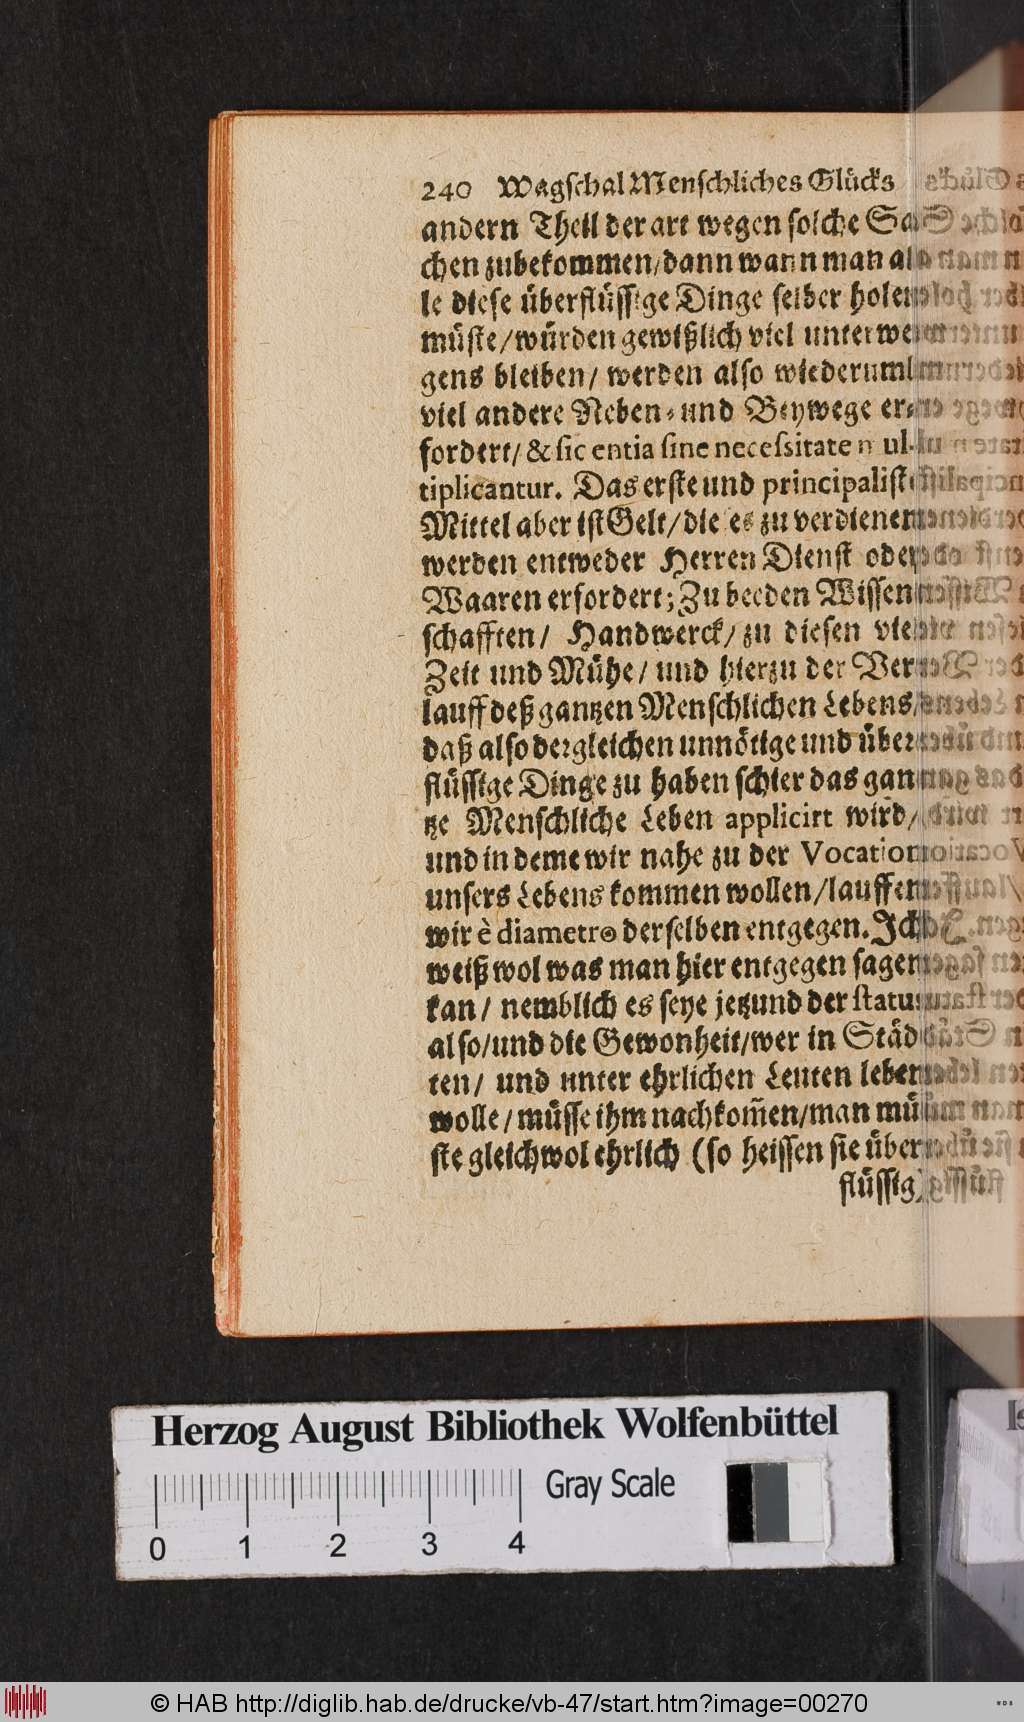 240 Wagschal Menschliches Glücks
andern Theil der art wegen solche Sa-
chen zubekommen/dann wann man al-
le diese überflüssige Dinge selber holen
müste/würden gewißlich viel unterwe-
gens bleiben/ werden also wiederumb
viel andere Neben- und Beywege er-
fordert/ & sic entia sine necessitate mul-
tiplicantur. Das erste und principaliste
Mittel aber ist Gelt/die es zu verdienen
werden entweder Herren Dienst oder
Waaren erfordert; Zu beeden Wissen-
schafften/ Handwerck/ zu diesen viel
Zeit und Mühe/ und hierzu der Ver-
lauff deß gantzen Menschlichen Lebens/
daß also dergleichen unnötige und über-
flüssige Dinge zu haben schier das gan-
tze Menschliche Leben applicirt wird/
und in deme wir nahe zu der Vocation
unsers Lebens kommen wollen/lauffen
wir è diametro derselben entgegen. Ich
weiß wol was man hier entgegen sagen
kan/ nemblich es seye jetzund der status
also/und die Gewonheit/wer in Städ-
ten/ und unter ehrlichen Leuten leben
wolle/müsse ihm nachkom̃en/man mü-
ste gleichwol ehrlich (so heissen sie über-
flüssig)
Herzog August Bibliothek Wolfenbüttel
Gray Scale
0 1 2 3 4
© HAB http://diglib.hab.de/drucke/vb-47/start.htm?image=00270
WDB